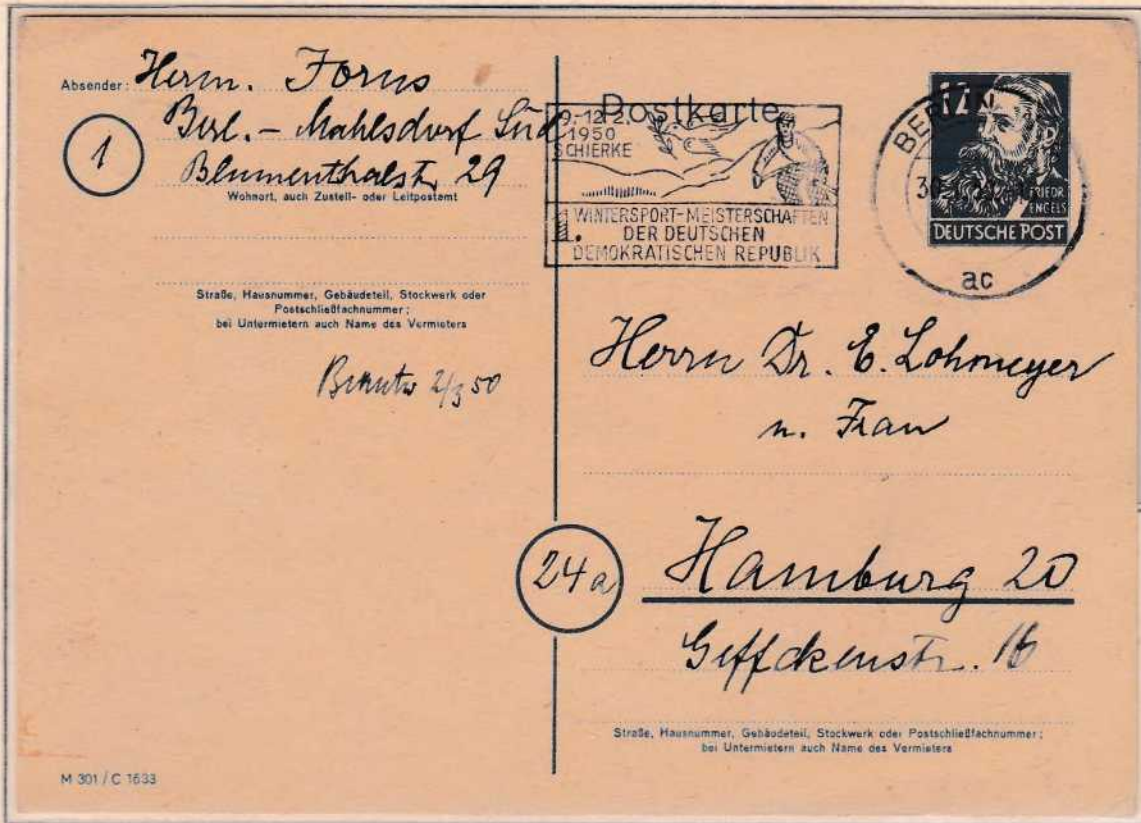 Absender: Herm. Forns
Berl. - Mahlsdorf Süd
1
Blumenthalstr 29
Wohnort, auch Zustell- oder Leitpostamt
Straße, Hausnummer, Gebäudeteil, Stockwerk oder
Postschließfachnummer;
bei Untermietern auch Name des Vermieters
2/3 50
M 301 / C 1633
Postkarte
9.-12.2.
1950
SCHIERKE
1. WINTERSPORT-MEISTERSCHAFTEN
DER DEUTSCHEN
DEMOKRATISCHEN REPUBLIK
BERLIN
ac
12
FRIEDR.
ENGELS
DEUTSCHE POST
Herrn Dr. E. Lohmeyer
u. Frau
24a
Hamburg 20
Geffckenstr. 16
Straße, Hausnummer, Gebäudeteil, Stockwerk oder Postschließfachnummer;
bei Untermietern auch Name des Vermieters